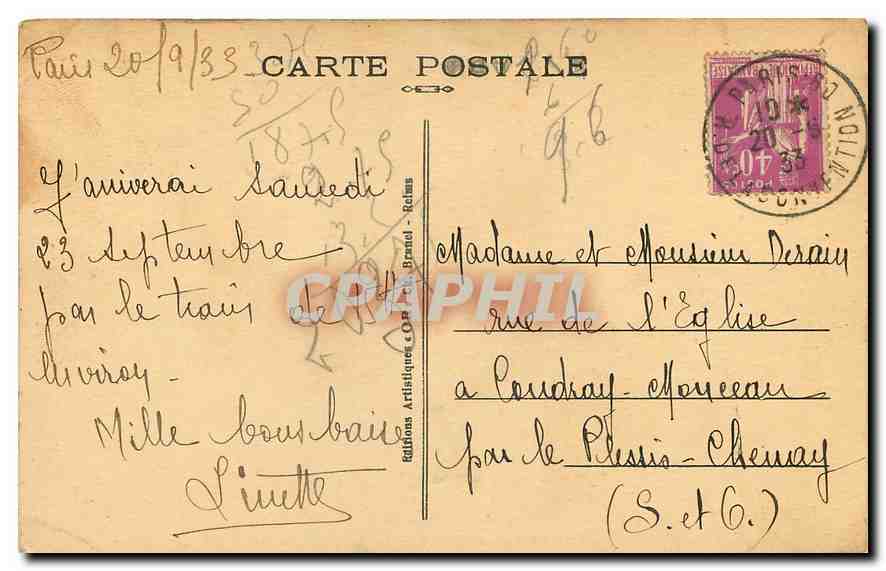 Paris 20/9/33
CARTE POSTALE
J'arriverai samedi
23 septembre
par le train de 5H
environ -
Mille bons baise
Linette
Editions Artistiques « OR » Ch. Brunel - Reims
Madame et Monsieur Derain
rue de l'Eglise
a Coudray-Monceau
par le Plessis-Chenay
(S. et O.)
PARIS
10 *
20 - 9
33
40c
POSTES
CARPHIL